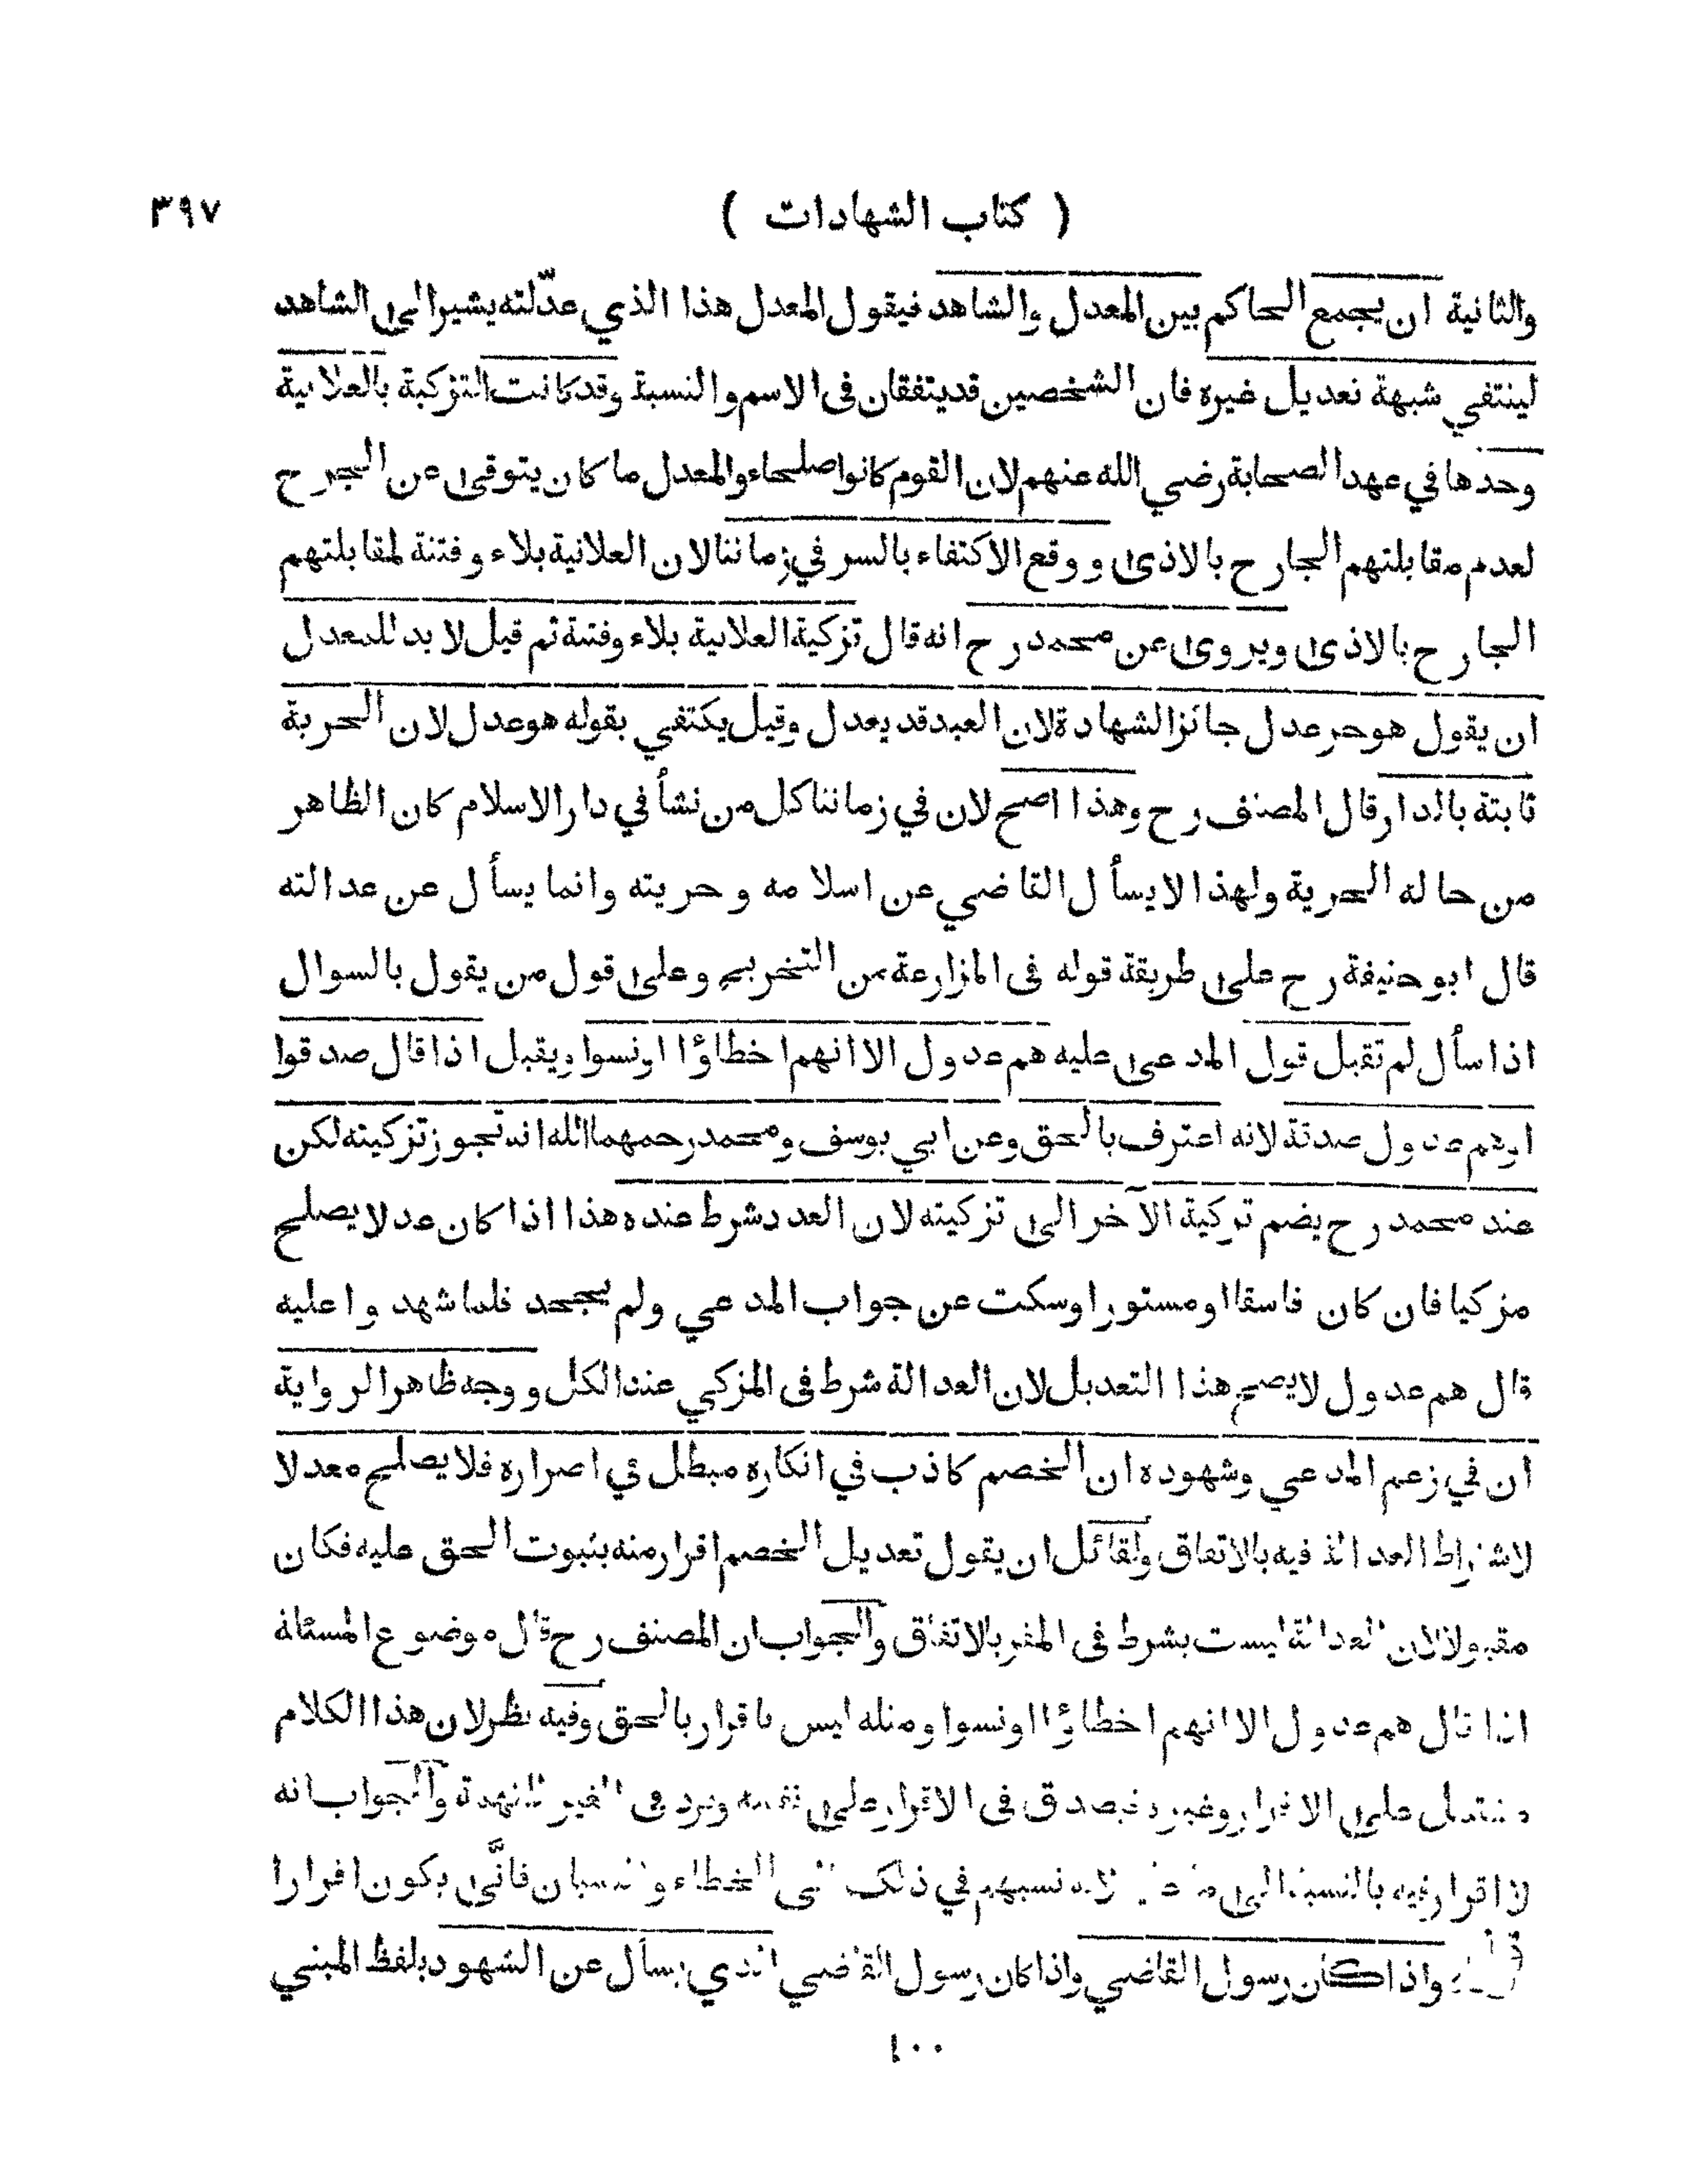 ( كتاب الشهادات ) ٣٩٧
والثانية ان يجمع الحاكم بين المعدل والشاهد فيقول المعدل هذا الذي عدّلته يشير الى الشاهد
لينتفي شبهة تعديل غيره فان الشخصين قد يتفقان فى الاسم والنسبة وقد كانت التزكية بالعلانية
وحدها في عهد الصحابة رضي الله عنهم لان القوم كانوا صلحاء والمعدل ما كان يتوقى عن الجرح
لعدم مقابلتهم الجارح بالاذى ووقع الاكتفاء بالسر في زماننا لان العلانية بلاء وفتنة لمقابلتهم
الجارح بالاذى ويروى عن محمد رح انه قال تزكية العلانية بلاء وفتنة ثم قيل لا بد للمعدل
ان يقول هو حر عدل جائز الشهادة لان العبد قد يعدل وقيل يكتفي بقوله هو عدل لان الحرية
ثابتة بالدار قال المصنف رح وهذا اصح لان في زماننا كل من نشأ في دار الاسلام كان الظاهر
من حاله الحرية ولهذا لا يسأل القاضي عن اسلامه وحريته وانما يسأل عن عدالته
قال ابو حنيفة رح على طريقة قوله فى المزارعة من التخريج وعلى قول من يقول بالسوال
اذا سأل لم تقبل قول المدعى عليه هم عدول الا انهم اخطاؤا او نسوا ويقبل اذا قال صدقوا
او هم عدول صدقة لانه اعترف بالحق وعن ابي يوسف ومحمد رحمهما الله انه تجوز تزكيته لكن
عند محمد رح يضم تزكية الآخر الى تزكيته لان العدد شرط عنده هذا اذا كان عدلا يصلح
مزكيا فان كان فاسقا او مستورا وسكت عن جواب المدعي ولم يجحد فلما شهدوا عليه
قال هم عدول لا يصح هذا التعديل لان العدالة شرط فى المزكي عند الكل ووجه ظاهر الرواية
ان في زعم المدعي وشهوده ان الخصم كاذب في انكاره مبطل في اصراره فلا يصلح معدلا
لاشتراط العدالة فيه بالاتفاق ولقائل ان يقول تعديل الخصم اقرار منه بثبوت الحق عليه فكان
مقبولا لان العدالة ليست بشرط فى المقر بالاتفاق والجواب ان المصنف رح قال موضوع المسئلة
اذا قال هم عدول الا انهم اخطاؤا او نسوا ومثله ليس باقرار بالحق وفيه نظر لان هذا الكلام
مشتمل على الاقرار وغيره فيصدق فى الاقرار على نفسه ويرد فى الغير للتهمة والجواب انه
لا اقرار فيه بالنسبة الى لانه نسبهم في ذلك الى الخطاء والنسيان فانّى يكون اقرارا
واذا كان رسول القاضي واذا كان رسول القاضي الذي يسأل عن الشهود بلفظ المبني
١٠٠